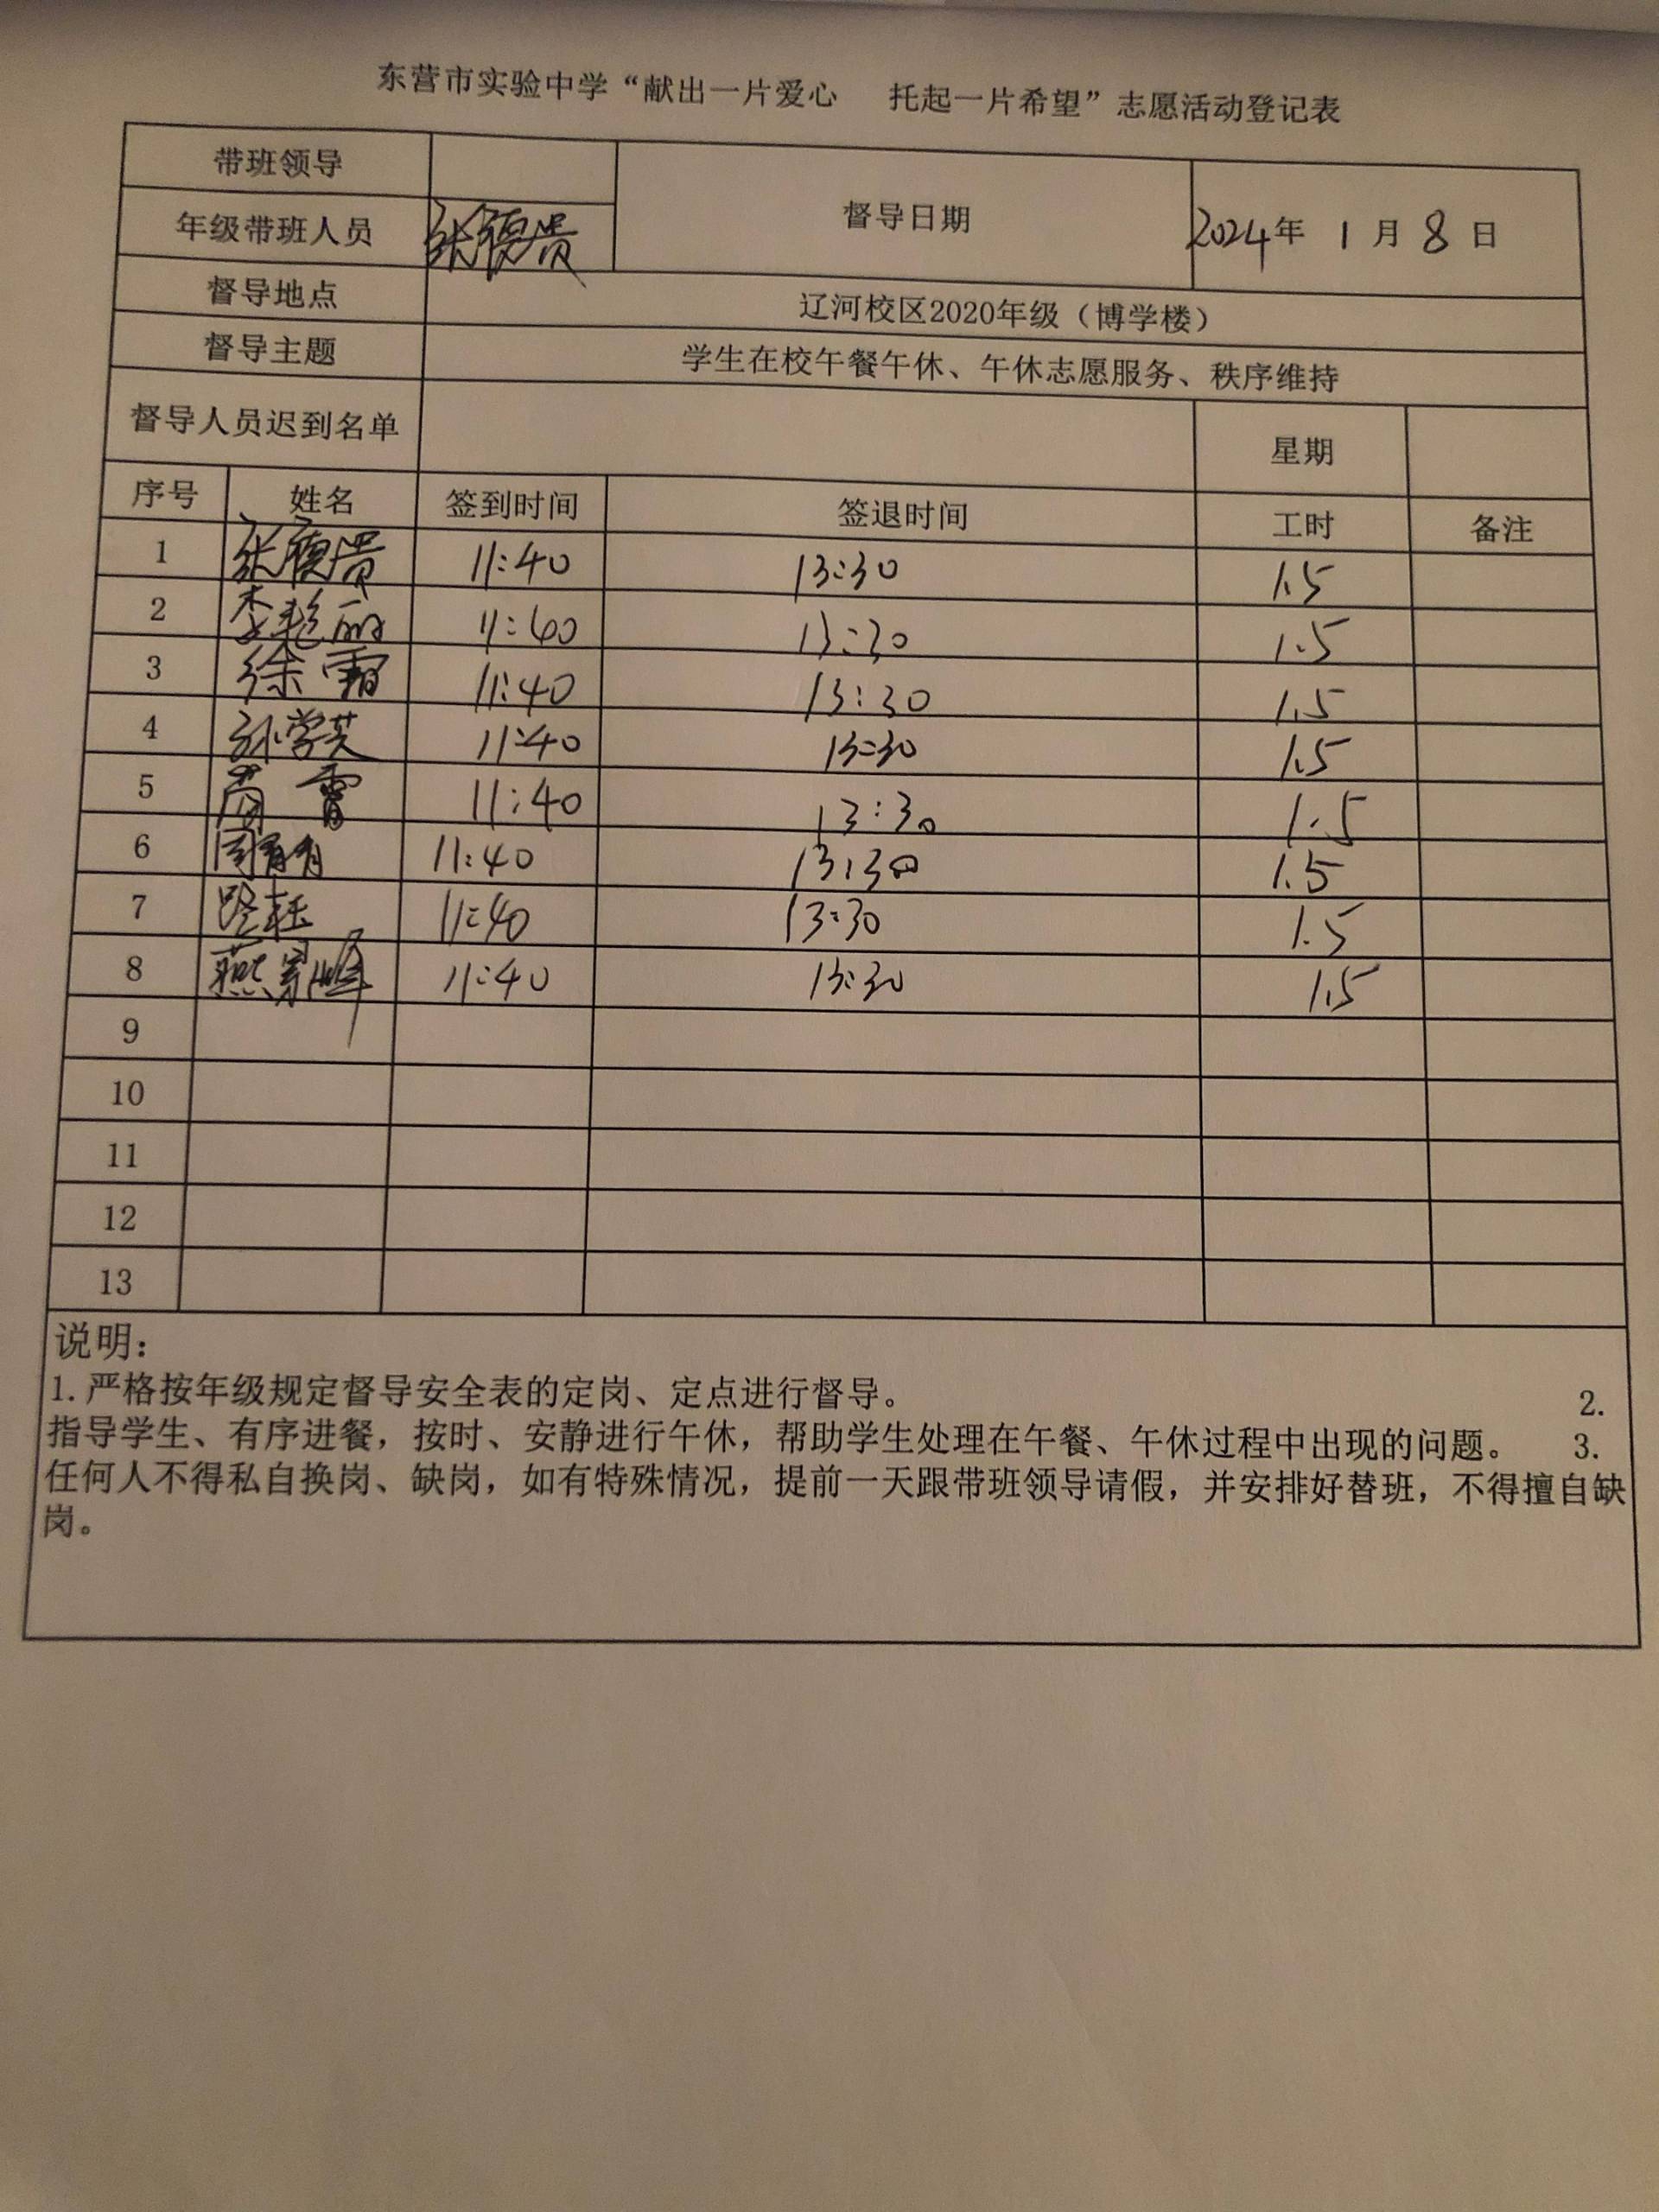 东营市实验中学“献出一片爱心 托起一片希望”志愿活动登记表
带班领导
年级带班人员 张德贵 督导日期 2024年 1 月 8 日
督导地点 辽河校区2020年级（博学楼）
督导主题 学生在校午餐午休、午休志愿服务、秩序维持
督导人员迟到名单 星期
序号 姓名 签到时间 签退时间 工时 备注
1 张德贵 11:40 13:30 1.5
2 李艳丽 11:40 13:30 1.5
3 徐霜 11:40 13:30 1.5
4 孙学芝 11:40 13:30 1.5
5 11:40 13:30 1.5
6 11:40 13:30 1.5
7 路钰 11:40 13:30 1.5
8 燕景峰 11:40 13:30 1.5
9
10
11
12
13
说明：
1. 严格按年级规定督导安全表的定岗、定点进行督导。 2.
指导学生、有序进餐，按时、安静进行午休，帮助学生处理在午餐、午休过程中出现的问题。 3.
任何人不得私自换岗、缺岗，如有特殊情况，提前一天跟带班领导请假，并安排好替班，不得擅自缺
岗。